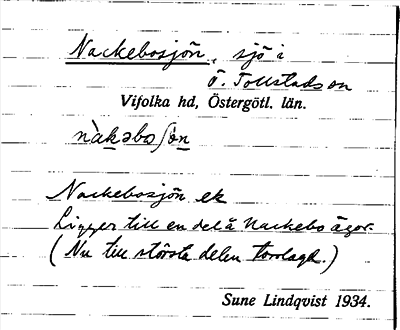 Nackebosjön, sjö i
Ö. Tollstads sn
Vifolka hd, Östergötl. län.
nàkəboʃö̀n
Nackebosjön ek
Ligger till en del å Nackebo ägor.
(Nu till största delen torrlagd.)
Sune Lindqvist 1934.